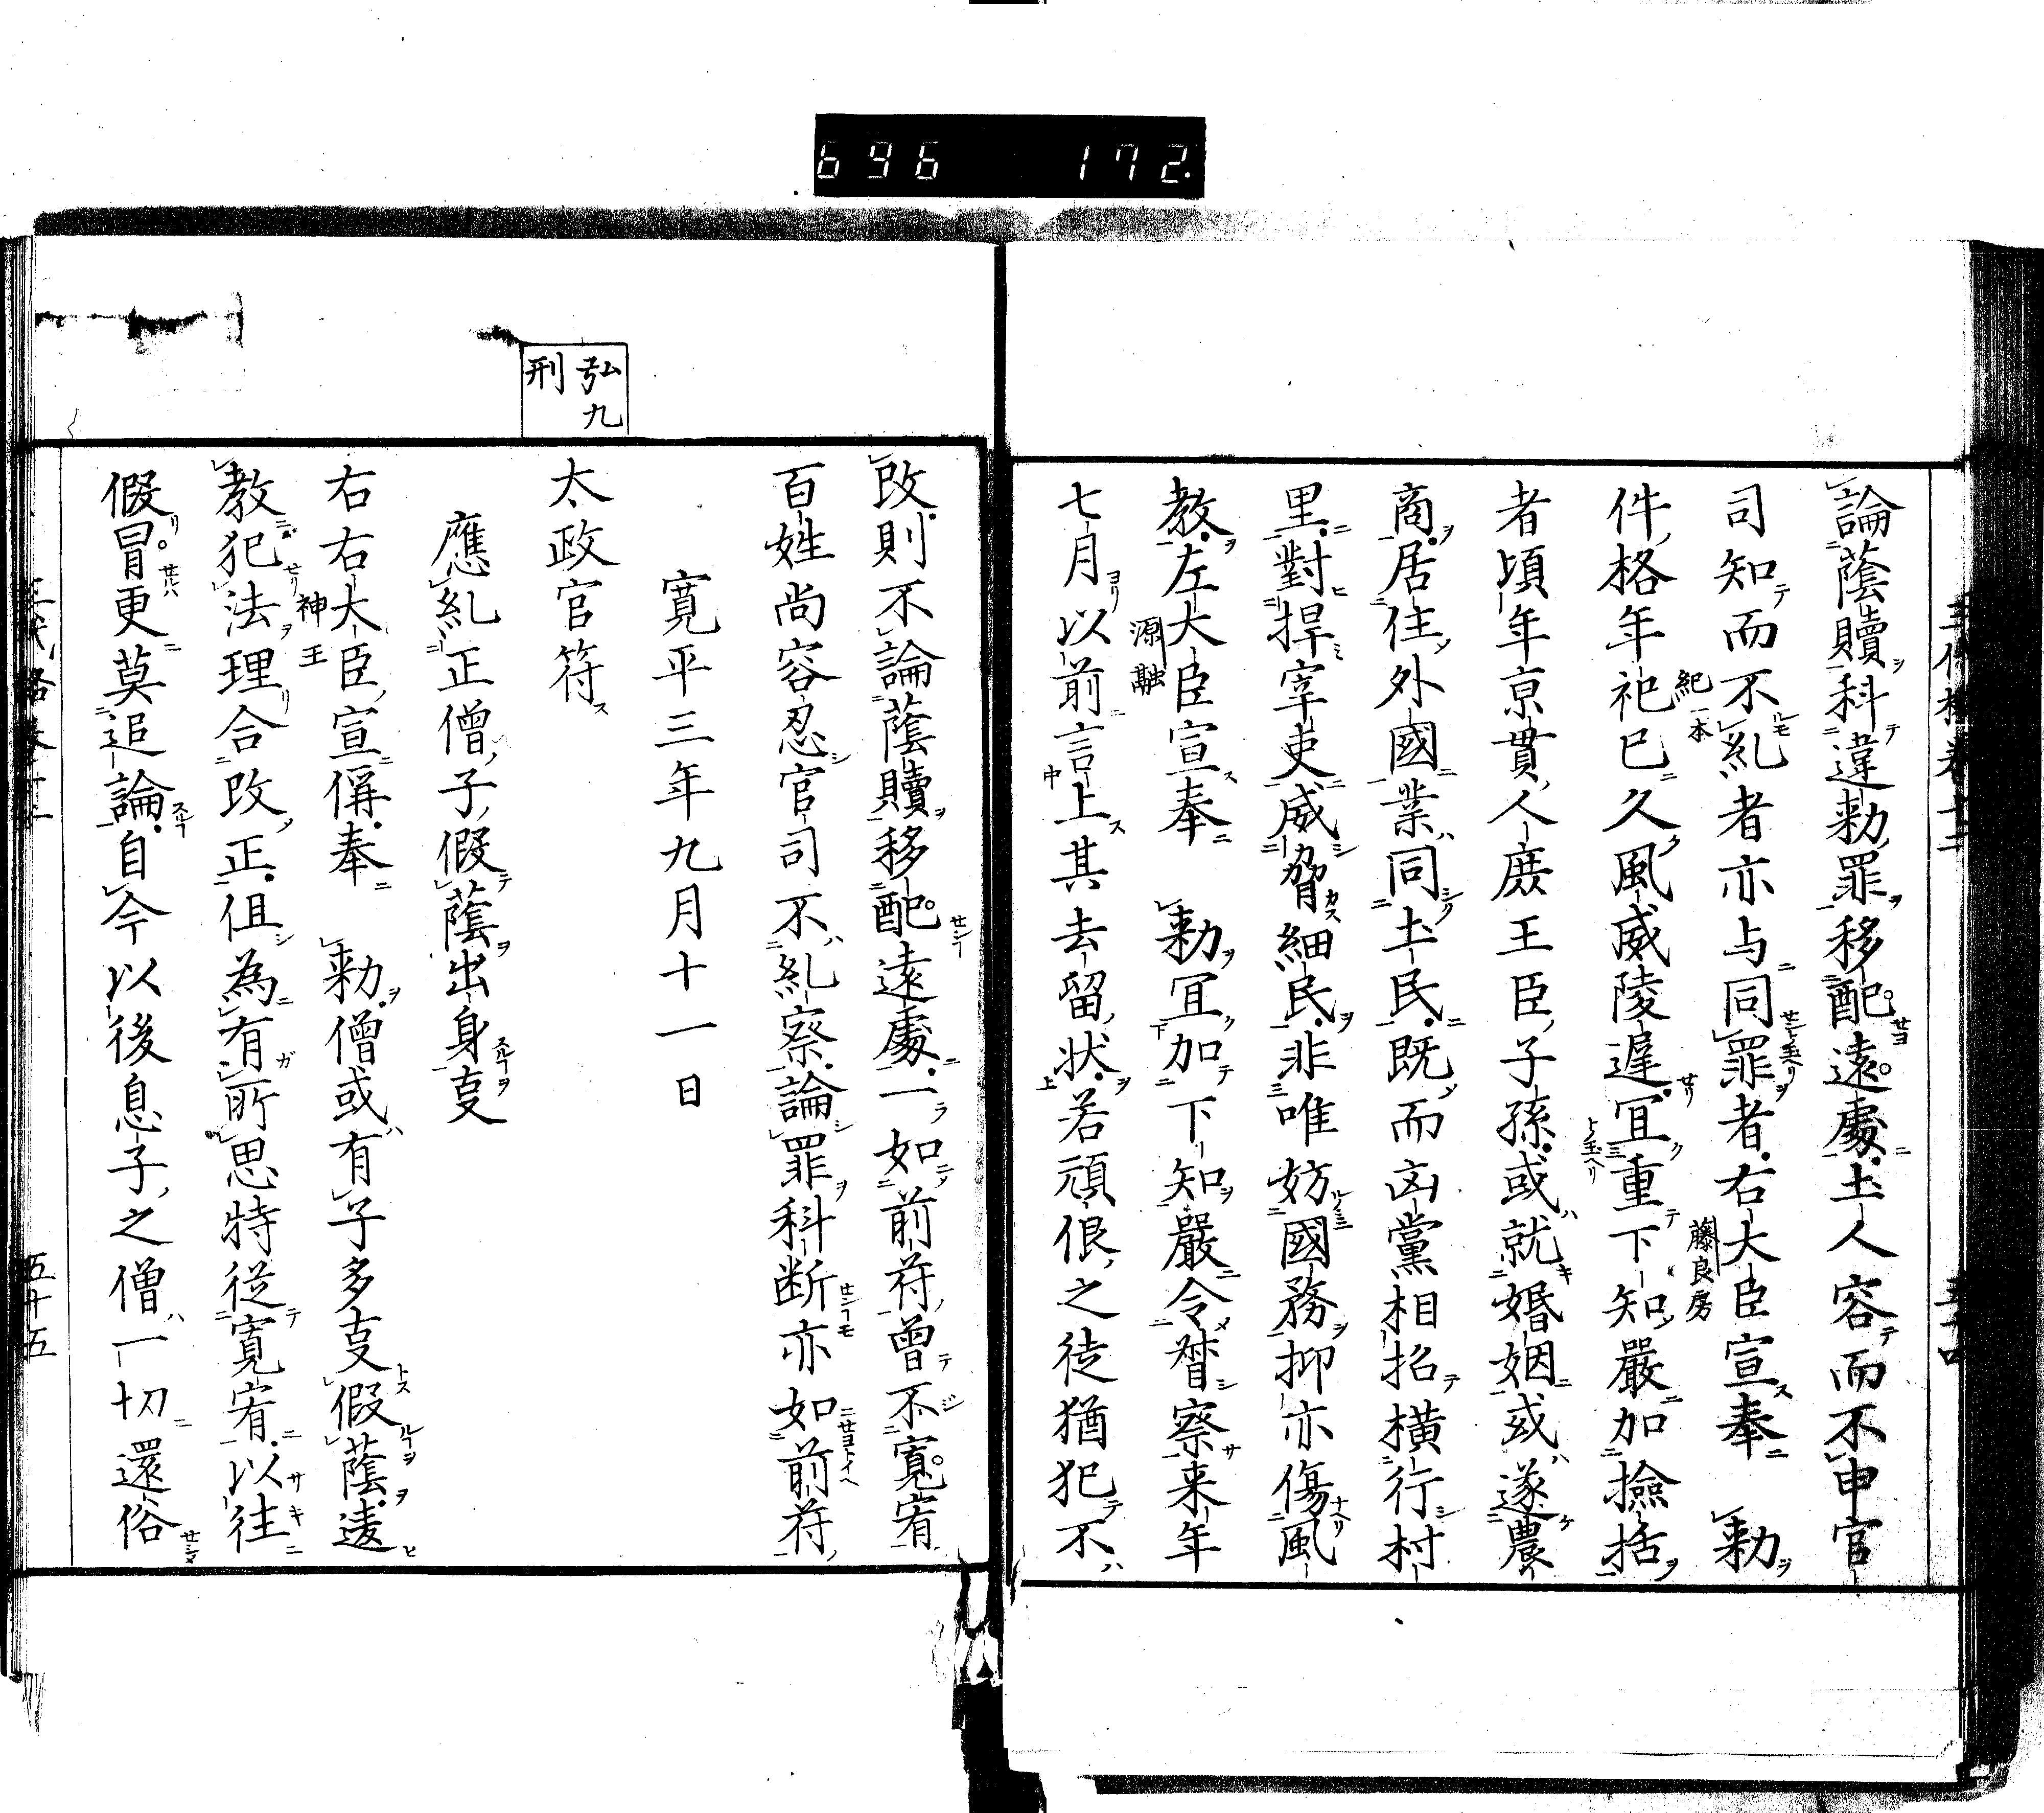 696 172.
論蔭贖科違勅罪移配遠處土人容而不申官
司知而不糺者亦与同罪者右大臣宣奉 勅
藤良房
件格年祀已久風威陵遅冝重下知嚴加撿括
紀一本
者頃年京貫人庶王臣子孫或就婚姻或遂農
商居住外國業同土民既而凶黨相招橫行村
里對捍宰吏威脅細民非唯妨國務抑亦傷風
教左大臣宣奉 勅冝加下知嚴令督察来年
源融
七月以前言上其去留状若頑佷之徒猶犯不
改則不論蔭贖移配遠處一如前符曾不寬宥
百姓尚容忍官司不糺察論罪科断亦如前符
寛平三年九月十一日
弘九
刑
太政官符
應糺正僧子假蔭出身㕝
右右大臣宣偁奉 勅僧或有子多㕝假蔭違
神王
教犯法理合改正但為有所思特従寛宥以往
假冒更莫追論自今以後息子之僧一切還俗
五十五